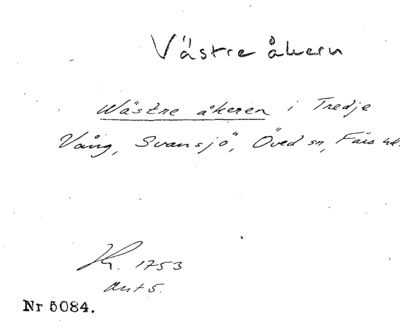 Västre åkern
Wästre åkeren i Tredje
Vång, Svansjö, Öved sn, Färs hd.
1753
Akt 5.
Nr 5084.